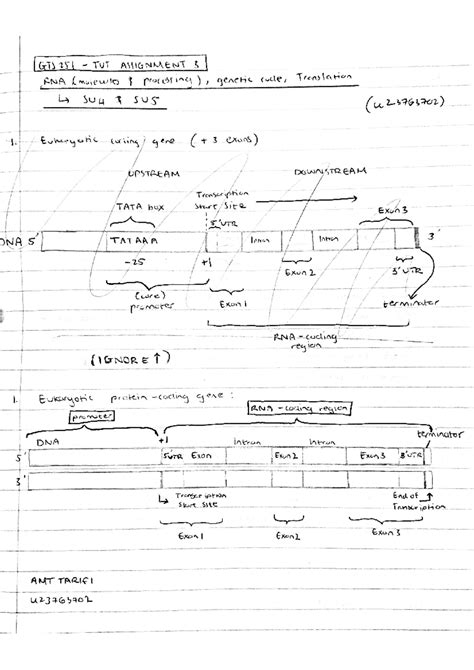 GTS 251 - TUT ASSIGNMENT 3
RNA (molecules & processing), genetic code, Translation
↳ SU4 & SU5
(u23763702)
1. Eukaryotic coding gene (+3 exons)
UPSTREAM
DOWNSTREAM
TATA box
Transcription
Start Site
5'UTR
Exon 3
DNA 5'
TATAAA
Intron
Intron
3'
-25
+1
Exon 2
3'UTR
(core)
promoter
Exon 1
terminator
RNA-coding
region
(IGNORE ↑)
1. Eukaryotic protein-coding gene:
promoter
RNA-coding region
DNA
+1
Intron
Intron
terminator
5'
5'UTR
Exon
Exon 2
Exon 3
3'UTR
3'
↳ Transcription
Start Site
End of
Transcription
Exon 1
Exon 2
Exon 3
u23763702